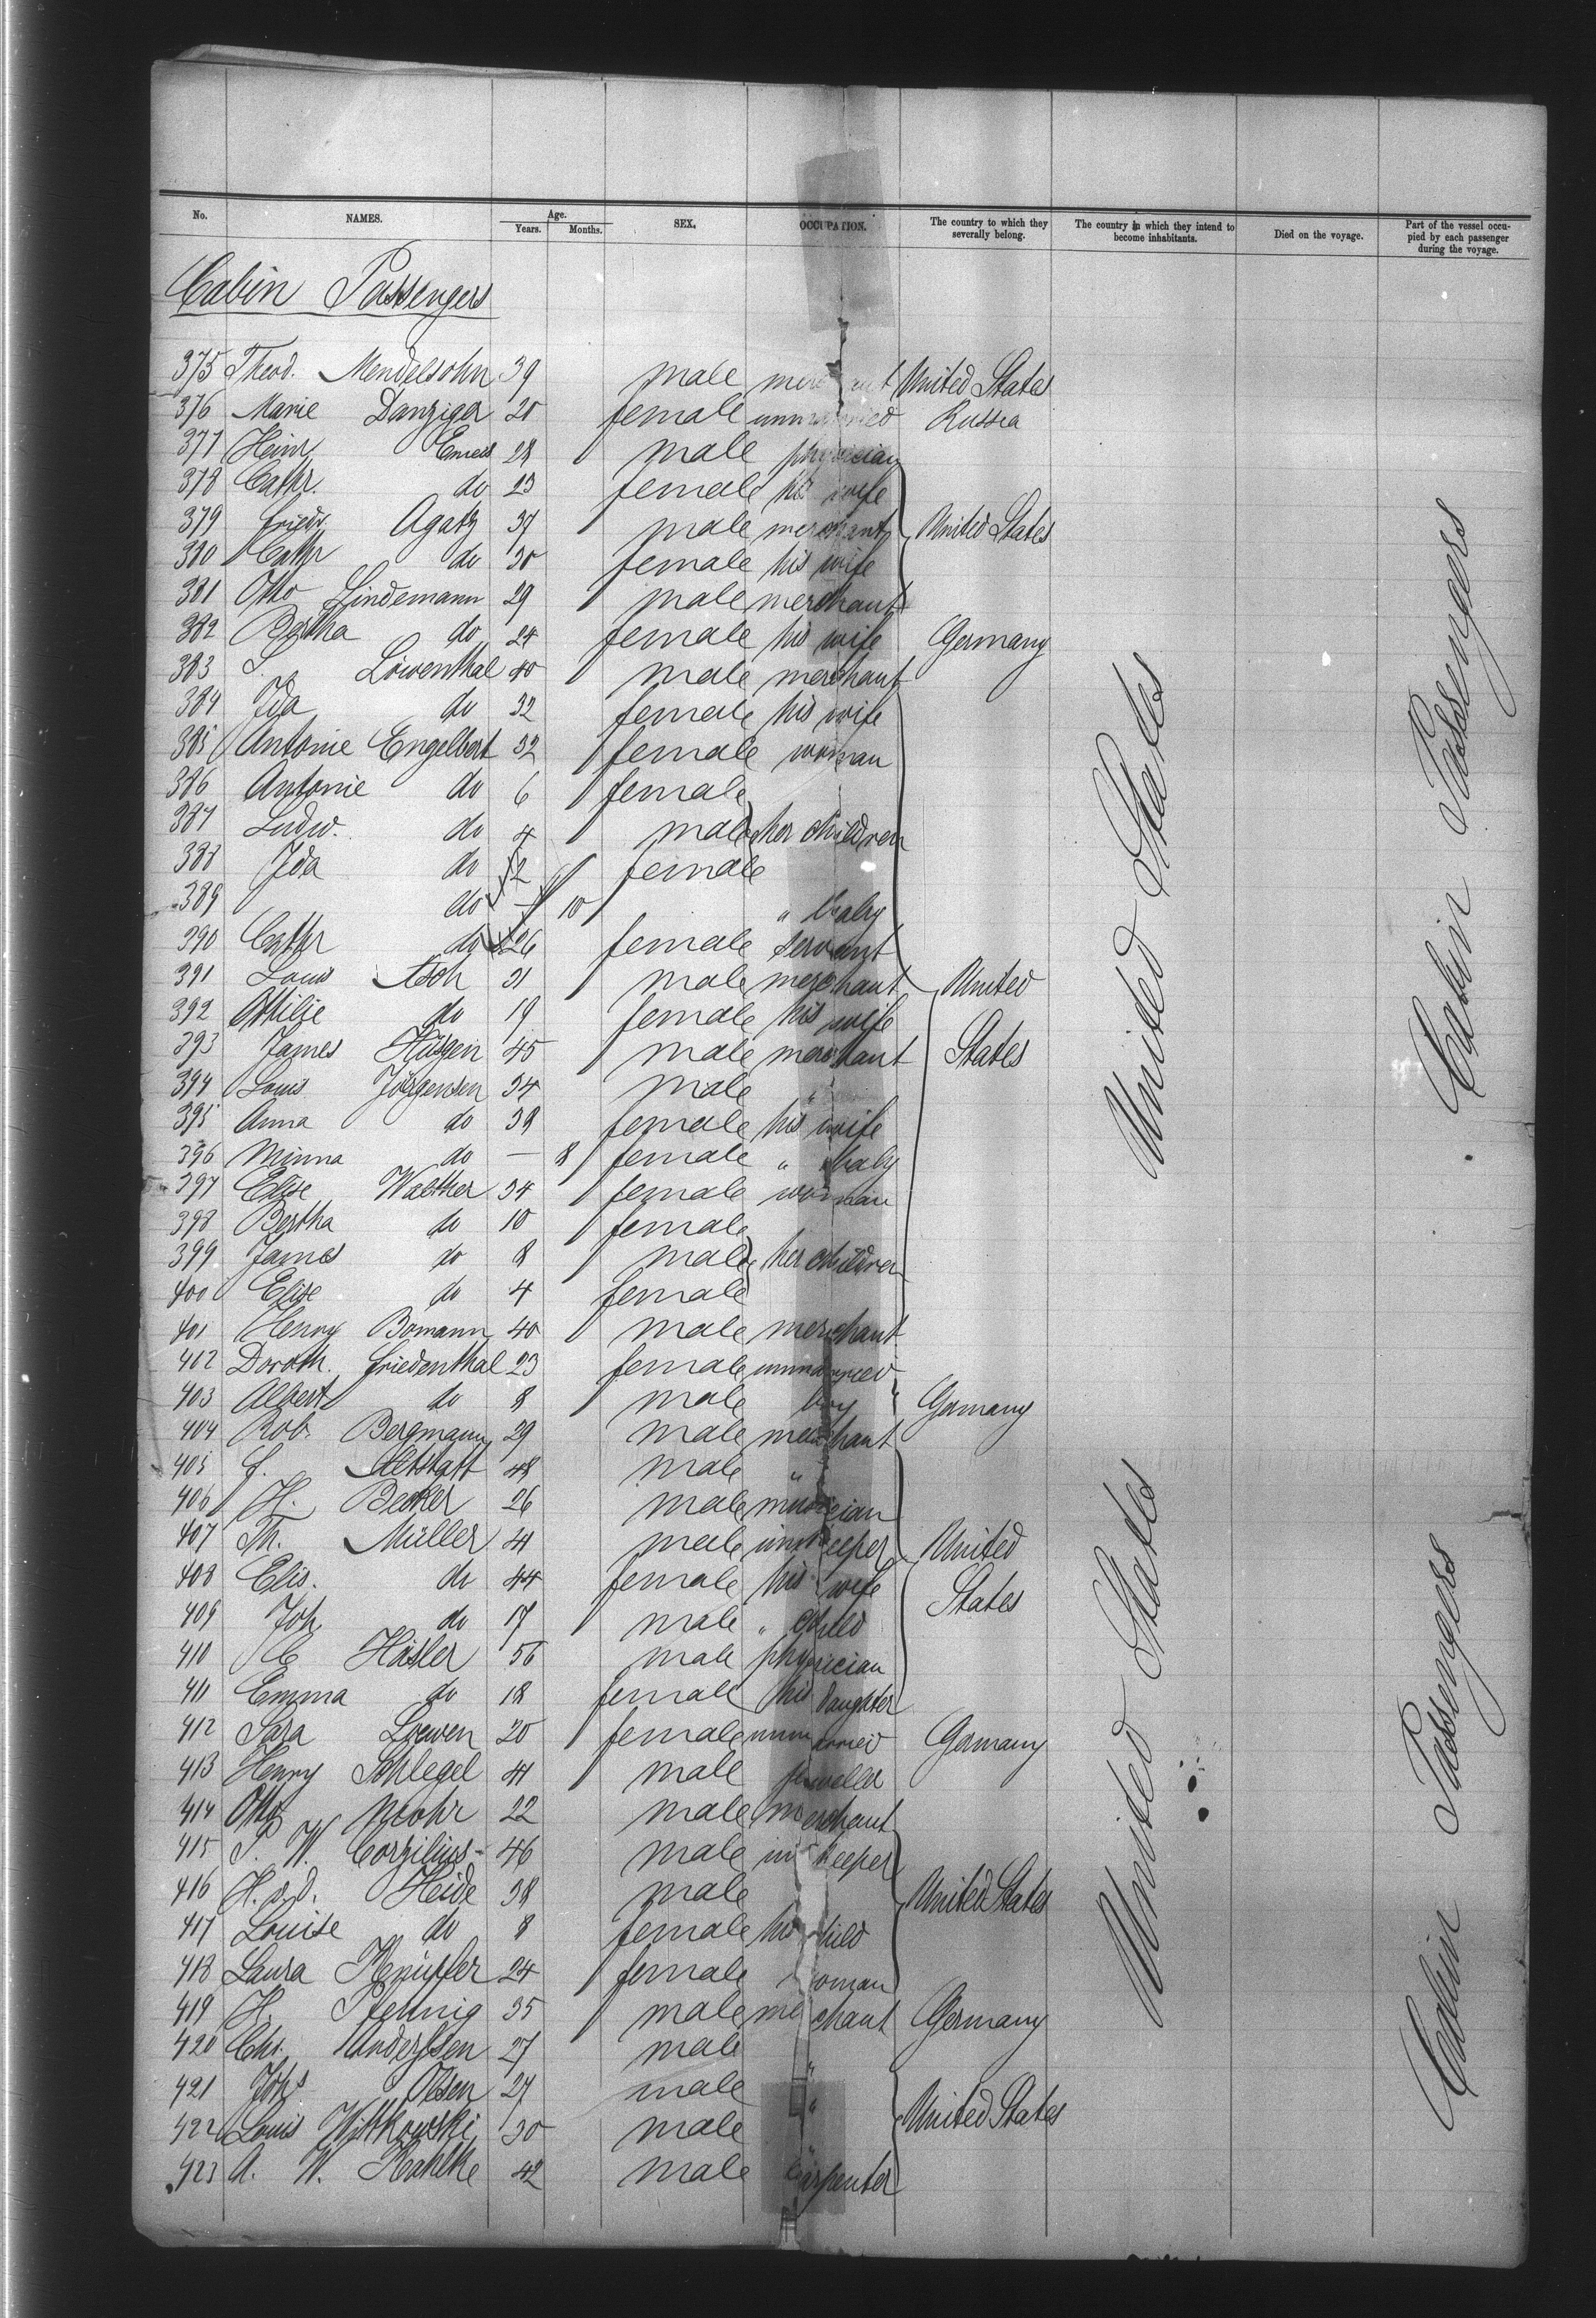 No. NAMES. Age. Years. Months. SEX. OCCUPATION. The country to which they severally belong. The country in which they intend to become inhabitants. Died on the voyage. Part of the vessel occupied by each passenger during the voyage.
Cabin Passengers
375 Theod. Mendelsohn 39 male merchant United States
376 Marie Danziger 20 female unmarried Russia
377 Heinr. Emeis 28 male physician
378 Cathr. do 23 female his wife
379 Friedr. Agatz 37 male merchant United States
380 Cathr do 30 female his wife
381 Otto Lindemann 29 male merchant
382 Bertha do 24 female his wife Germany
383 S. Löwenthal 40 male merchant
384 Ida do 32 female his wife
385 Antonie Engelbert 32 female woman
386 Antonie do 6 female
387 Ludw. do 4 male her children
388 Ida do 2 female
389 do — 10 " baby
390 Cathr do 26 female servant
391 Louis Asch 31 male merchant United
392 Ottilie do 19 female his wife
393 James Hüsgen 45 male merchant States
394 Louis Jörgensen 34 male "
395 Anna do 38 female his wife
396 Minna do — 8 female " baby
397 Elise Walther 34 female woman
398 Bertha do 10 female
399 James do 8 male her children
400 Elise do 4 female
401 Henry Bomann 40 male merchant
402 Doroth. Friedenthal 23 female unmarried
403 Albert do 8 male boy Germany
404 Rob. Bergmann 29 male merchant
405 F. Altstatt 48 male "
406 H. Becker 26 male musician
407 Th. Müller 41 male innkeeper United
408 Elis. do 44 female his wife States
409 Joh. do 17 male " child
410 C Häsler 56 male physician
411 Emma do 18 female his daughter
412 Sara Loewen 20 female unmarried Germany
413 Henry Schlegel 41 male jeweller
414 Otto Mohr 22 male merchant
415 P. W. Corzilius 46 male innkeeper
416 H. v. d. Heide 38 male United States
417 Louise do 8 female his child
418 Laura Knüpfer 24 female woman
419 H. Pfennig 35 male merchant Germany
420 Chr. Anderssen 27 male "
421 Johs Olsen 27 male "
422 Louis Wittkowski 30 male " United States
423 A. W. Kahlke 42 male carpenter
United States
United States
Cabin Passengers
Cabin Passengers